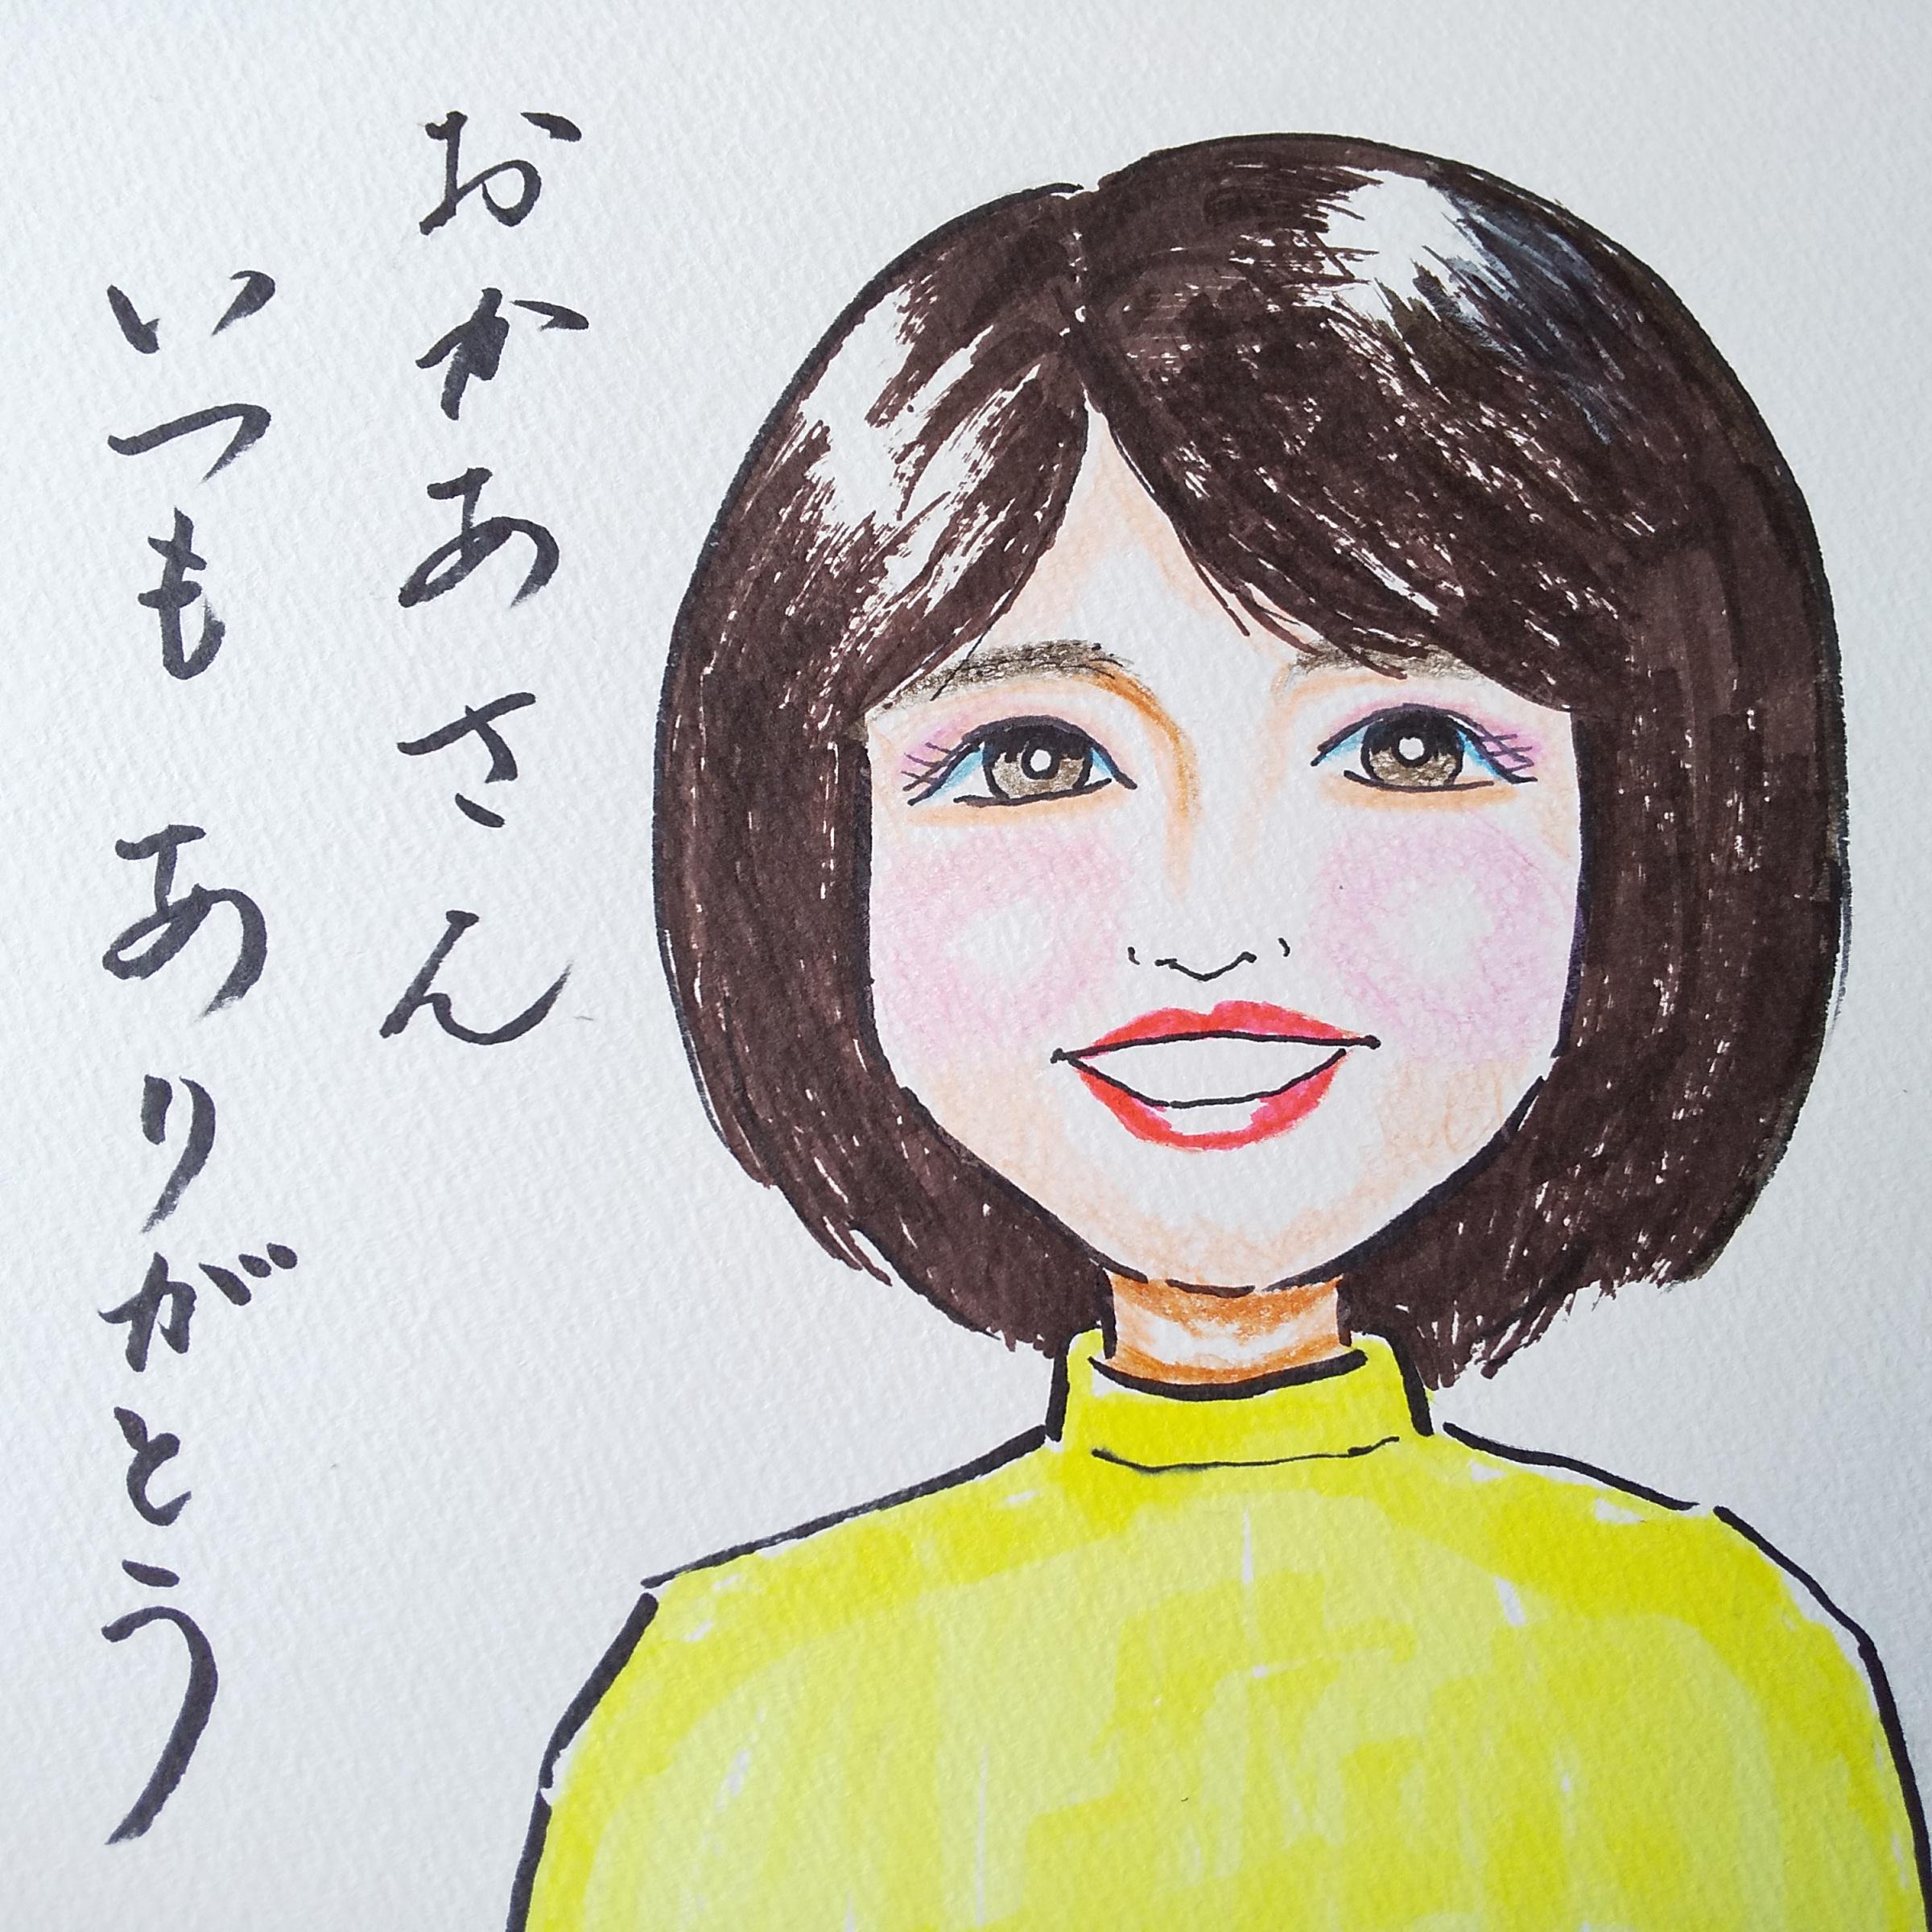 おかあさん
いつもありがとう